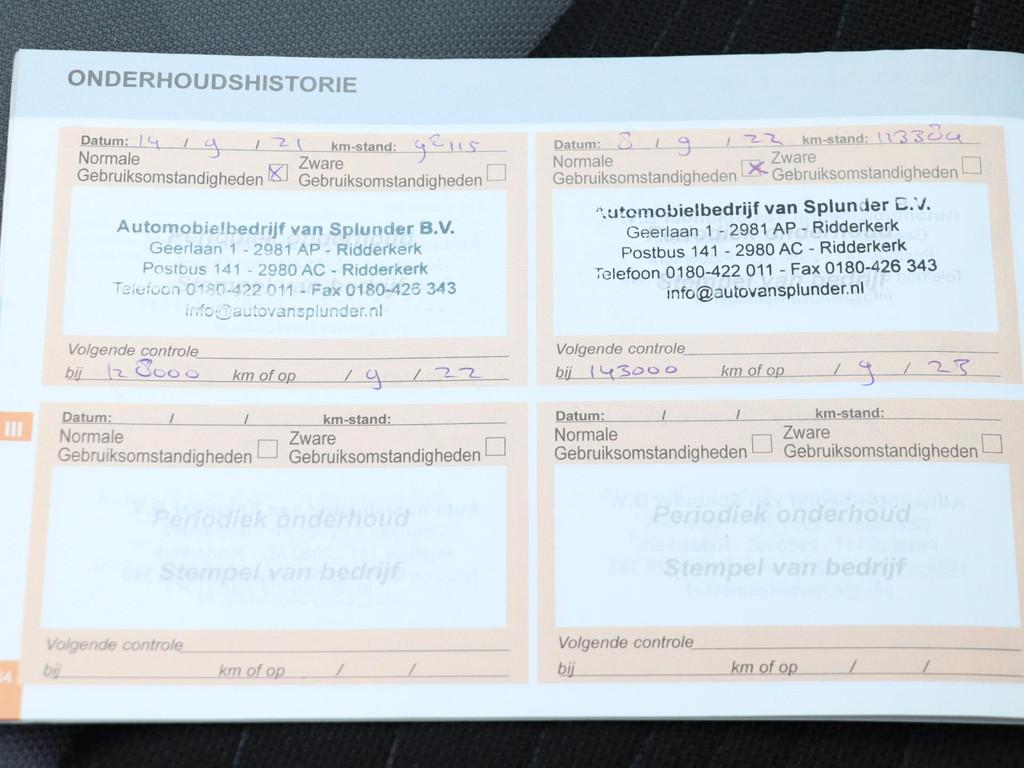 ONDERHOUDSHISTORIE
Datum: 14 / 9 / 21 km-stand: 98115
Normale
Gebruiksomstandigheden
Zware
Gebruiksomstandigheden
Automobielbedrijf van Splunder B.V.
Geerlaan 1 - 2981 AP - Ridderkerk
Postbus 141 - 2980 AC - Ridderkerk
Telefoon 0180-422 011 - Fax 0180-426 343
info@autovansplunder.nl
Volgende controle
bij 128000 km of op / 9 / 22
Datum: 8 / 9 / 22 km-stand: 113384
Normale
Gebruiksomstandigheden
Zware
Gebruiksomstandigheden
Automobielbedrijf van Splunder B.V.
Geerlaan 1 - 2981 AP - Ridderkerk
Postbus 141 - 2980 AC - Ridderkerk
Telefoon 0180-422 011 - Fax 0180-426 343
info@autovansplunder.nl
Volgende controle
bij 143000 km of op / 9 / 23
III
Datum: / / km-stand:
Normale
Gebruiksomstandigheden
Zware
Gebruiksomstandigheden
Periodiek onderhoud
Stempel van bedrijf
Volgende controle
bij km of op / /
Datum: / / km-stand:
Normale
Gebruiksomstandigheden
Zware
Gebruiksomstandigheden
Periodiek onderhoud
Stempel van bedrijf
Volgende controle
bij km of op / /